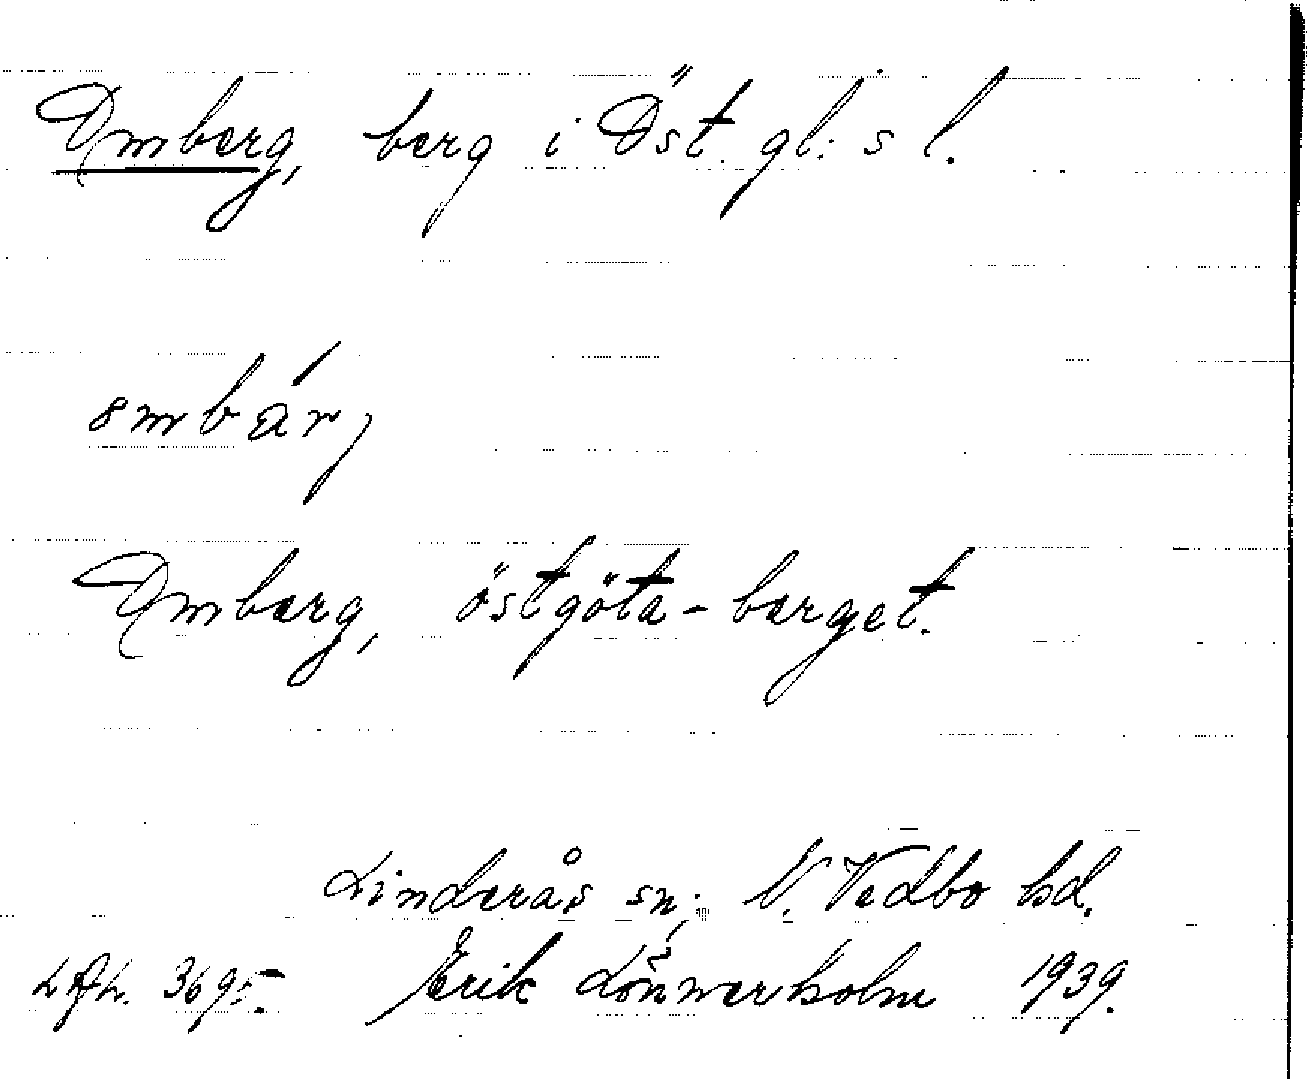 Omberg, berg i Öst.gl: s l.
ombár,
Omberg, östgöta-berget.
Linderås sn; N. Vedbo hd.
3695. Erik Lönnerholm 1939.